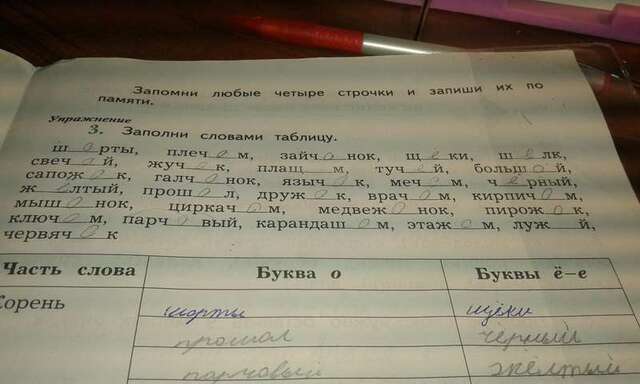 Запомни любые четыре строчки и запиши их по
памяти.
Упражнение
3. Заполни словами таблицу.
шорты, плечом, зайчонок, щёки, шёлк,
свечой, жучок, плащ__м, тучей, большой,
сапожок, галчонок, язычок, мечом, чёрный,
жёлтый, прошол, дружок, врачом, кирпичом,
мышонок, циркачом, медвежонок, пирожок,
ключом, парчовый, карандашом, этажом, луж__й,
червячок
Часть слова Буква о Буквы ё–е
Корень шорты щёки
прошол чёрный
парчовый жёлтый